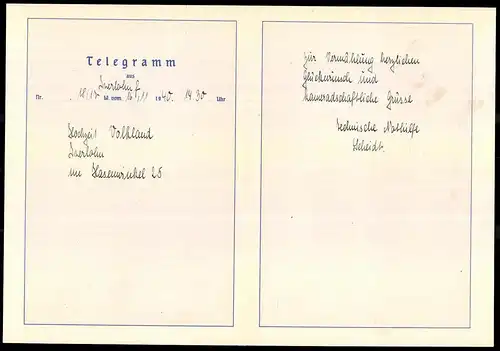 Telegramm
aus
Iserlohn
Nr. 18/17 W. vom 16/11 1940. 14.30 Uhr
Hochzeit Volkland
Iserlohn
im Hasenwinkel 25
Zur Vermählung herzlichen
Glückwunsch und
kameradschaftliche Grüsse
Technische Nothilfe
Scheidt.